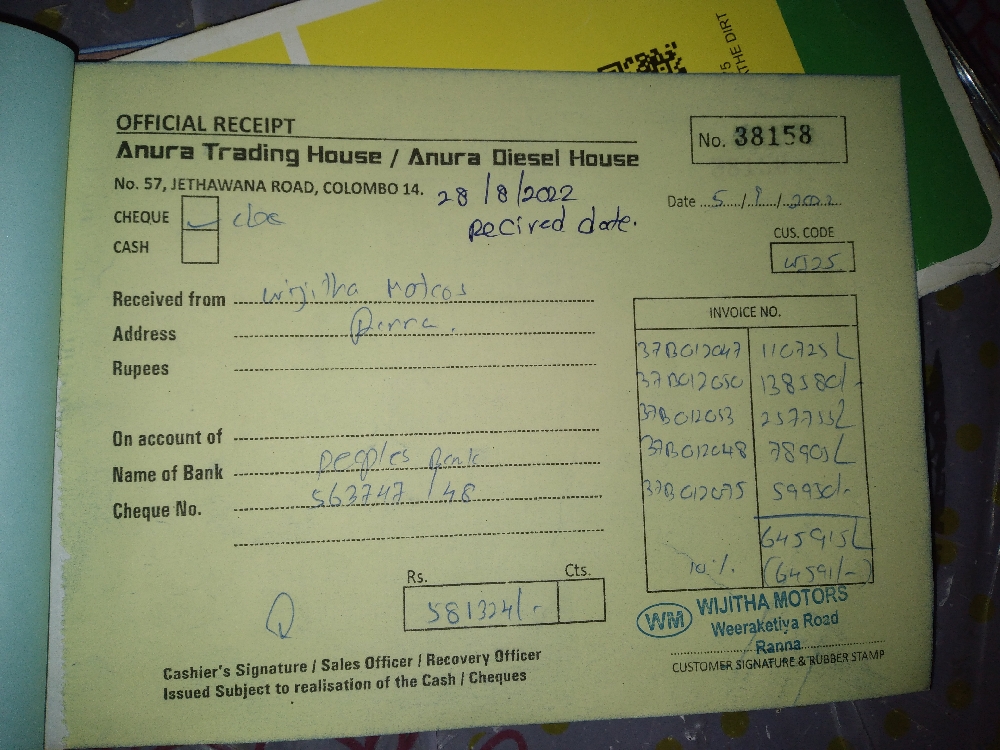 THE DIRT
OFFICIAL RECEIPT
Anura Trading House / Anura Diesel House
No. 38158
No. 57, JETHAWANA ROAD, COLOMBO 14.
28/8/2022
Recived date.
Date 5/9/2022
CHEQUE
CASH
CUS. CODE
WJ25
Received from Wijitha Motors
Address Ranna.
Rupees
On account of
Name of Bank Peoples Bank
Cheque No. 563747 / 48
INVOICE NO.
37B012047 110725/-
37B012050 138580/-
37B012053 257755/-
37B012048 78905/-
37B012075 59950/-
645915/-
10% (64591/-)
Rs. Cts.
581324/-
WM WIJITHA MOTORS
Weeraketiya Road
Ranna
CUSTOMER SIGNATURE & RUBBER STAMP
Cashier's Signature / Sales Officer / Recovery Officer
Issued Subject to realisation of the Cash / Cheques